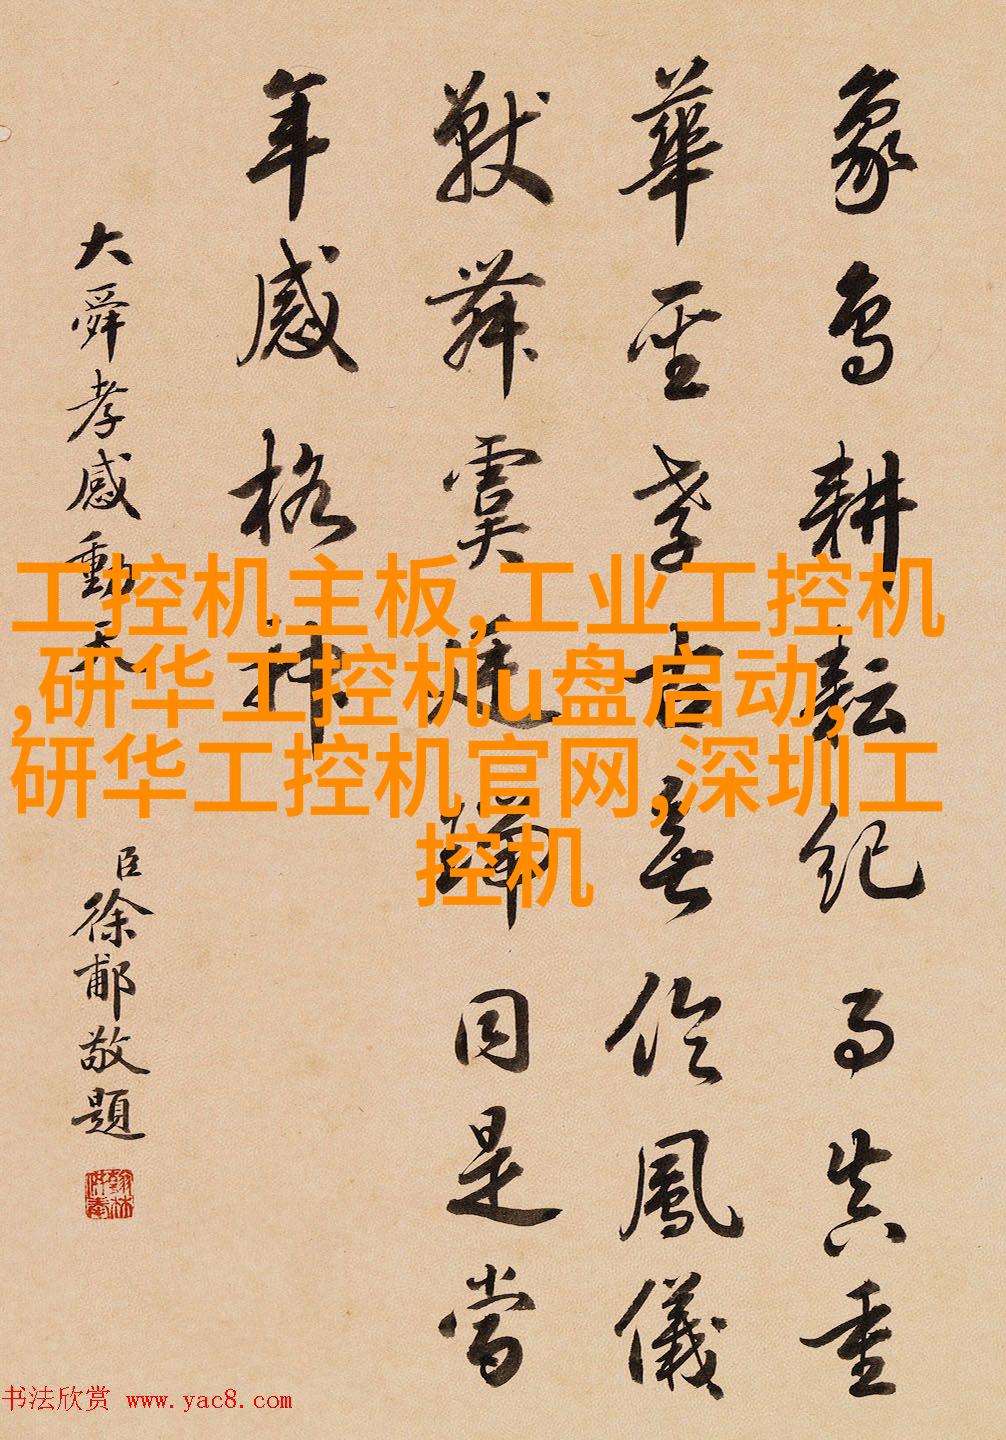 象鳥耕耘紀事真重
華至孝古無倫鳳儀
獸舞虞廷瑞同是當
年感格神
大舜孝感動天
臣徐郙敬題
工控机主板,工业工控机
,研华工控机u盘启动,
研华工控机官网,深圳工
控机
书法欣赏 www.yac8.com